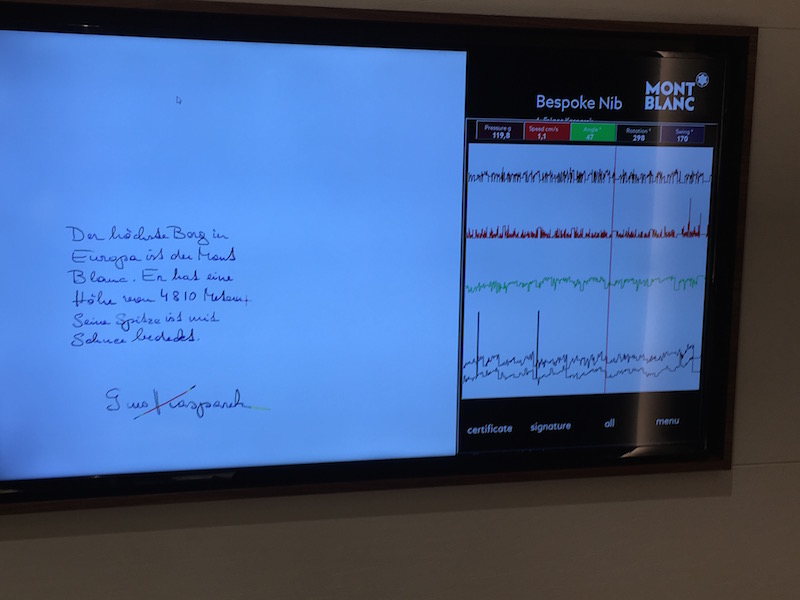 Der höchste Berg in
Europa ist der Mont
Blanc. Er hat eine
Höhe von 4810 Metern
Seine Spitze ist mit
Schnee bedeckt.
Bespoke Nib
MONT
BLANC
Pressure g
119,8
Speed cm/s
1,1
Angle °
47
Rotation °
298
Swing °
170
certificate
signature
all
menu